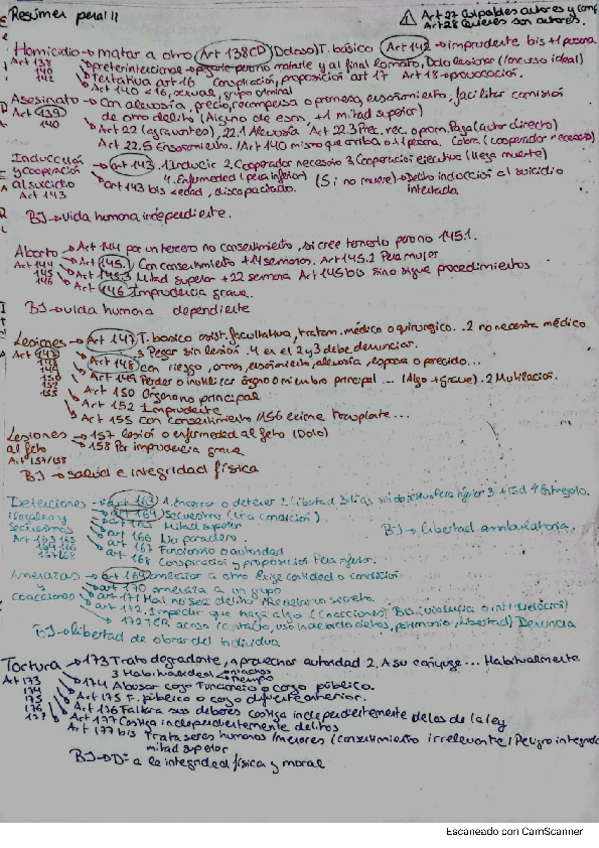 Resumen penal II
⚠ Art 27 Culpables autores y comp
Art 28 Quienes son autores.
Homicidio → matar a otro (Art 138 CP) Doloso) T. básico (Art 142 → imprudente bis +1 persona
Art 138 → preterintencional → pegarle pero no matarle y al final lo mato, Dolo lesionar (concurso ideal)
140 → tentativa art 16 Conspiración, proposición art 17 Art 18 → provocación.
142 → Art 140 <16, sexual, grupo criminal
Asesinato → Con alevosía, precio, recompensa o promesa, ensañamiento, facilitar comisión
Art 139 de otro delito (Alguno de esos, +1 mitad superior)
140 → Art 22 (agravantes), 22.1 Alevosía Art 22.3 Prec. rec. o prom. Paga (autor directo)
Art 22.5 Ensañamiento. (Art 140 mismo que arriba o +1 pers. Cobra (cooperador necesario)
Inducción → art 143. 1 Inducir 2 Cooperador necesario 3 Cooperación ejecutiva (llega muerte)
y cooperación 4. Enfermedad (pena inferior) (Si no muere) → Delito inducción al suicidio
al suicidio → art 143 bis <edad, discapacitado. intentada
Art 143
BJ → vida humana independiente.
Aborto → Art 144 por un tercero no consentimiento, si cree tenerlo pero no 145.1.
Art 144 → 145.1 Con consentimiento +14 semanas. Art 145.2 Pena mujer
145 → Art 145.3 Mitad superior +22 semana Art 145 bis sino sigue procedimientos
146 → 146 Imprudencia grave.
BJ → vida humana dependiente
Lesiones → Art 147 T. basico asist. facultativa, tratam. médico o quirurgico. .2 no necesita médico
Art 147 .3 Pegar sin lesión .4 en el 2 y 3 debe denunciar.
148 → Art 148 con riesgo, armas, ensañamiento, alevosía, esposa o parecido...
149 → Art 149 Perder o inutilizar órgano o miembro principal ... (Algo + grave) .2 Mutilación.
150 → Art 150 Organo no principal
152 → Art 152 Imprudente
155 → Art 155 con consentimiento 156 exime trasplante...
Lesiones → 157 lesión o enfermedad al feto (Dolo)
al feto → 158 Por imprudencia grave
Art 157/158
BJ → salud e integridad física
Detenciones → art 163 1. Encerrar o detener 2 libertad 3 días sin objetivo Pena inferior 3 +15d 4 Entregarlo.
ilegales y → art 164 Secuestro (una condición)
Secuestros → art 165 Mitad superior BJ → libertad ambulatoria.
Art 163 165 → art 166 No paradero
164 166 → art 167 Funcionario o autoridad
167 168 → art 168 Conspiración y proposición Pena inferior.
Amenazas → art 169 amenazar a otro Exige cantidad o condición
y → art 170 amenaza a un grupo
coacciones → art 171 Mal no sea delito .2 Revelar un secreto.
→ art 172. Impedir que haga algo ((coacciones) Bis. (violencia o intimidación)
→ 172 TER acoso (contacto, uso indebido datos, patrimonio, libertad) Denuncia
BJ → libertad de obrar del individuo
Tortura → 173 Trato degradante, aprovechar autoridad 2. A su conyuge ... Habitualmente
Art 173 3 Habitualidad → nº actos → tiempo
174 → 174 Abusar cargo Funcionario o cargo público.
175 → Art 175 F. público o cargo diferente anterior.
176 → Art 176 Faltara sus deberes castiga independientemente de las de la ley
177 → Art 177 Castiga independientemente delitos
Art 177 bis Trata seres humanos /menores (Consentimiento irrelevante / Peligro integridad
mitad superior
BJ → Dº a la integridad física y moral
Escaneado con CamScanner